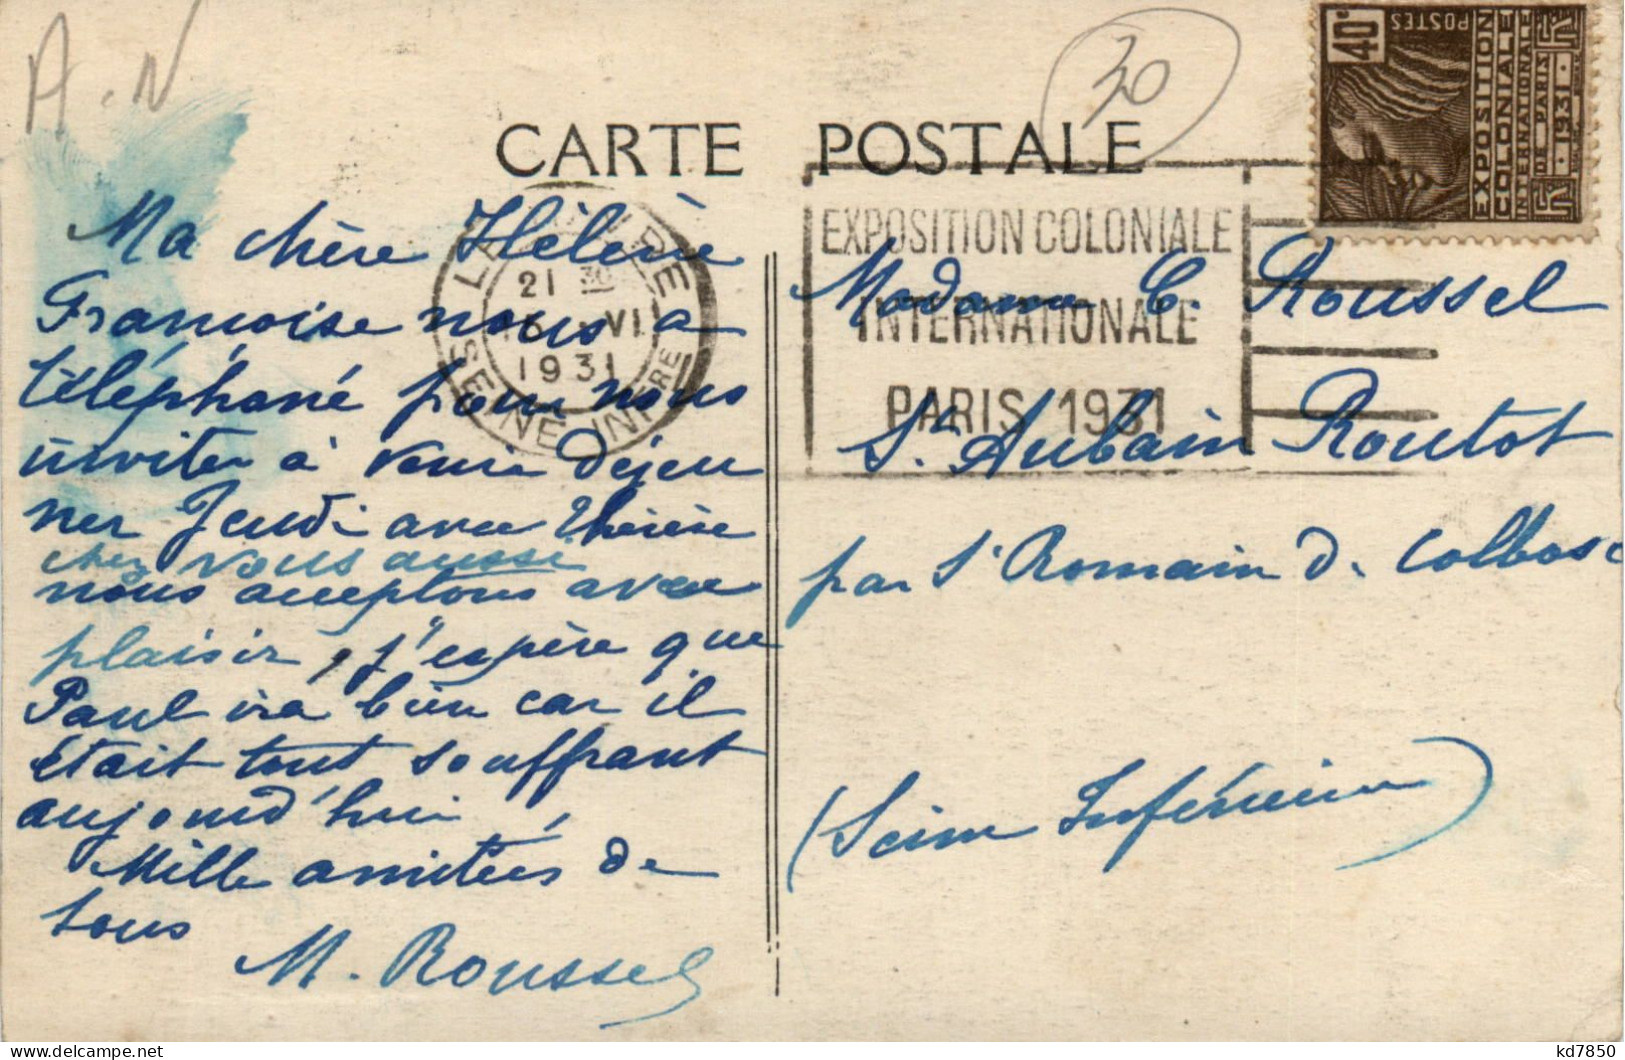 A.N
30
CARTE POSTALE
40c
POSTES
EXPOSITION
COLONIALE
INTERNATIONALE
DE PARIS
1931
EXPOSITION COLONIALE
INTERNATIONALE
PARIS 1931
21 30
VI
1931
SEINE INFRE
Ma chère Hélène
Françoise nous a
téléphoné pour nous
inviter à venir déjeu
ner Jeudi avec Thérèse
chez vous aussi
nous acceptons avec
plaisir, j'espère que
Paul ira bien car il
était tout souffrant
aujourd'hui
Mille amitiés de
tous
M. Roussel
Madame C. Roussel
St Aubain Routot
par St Romain d. Colbosc
(Seine Inférieure)
kd7850